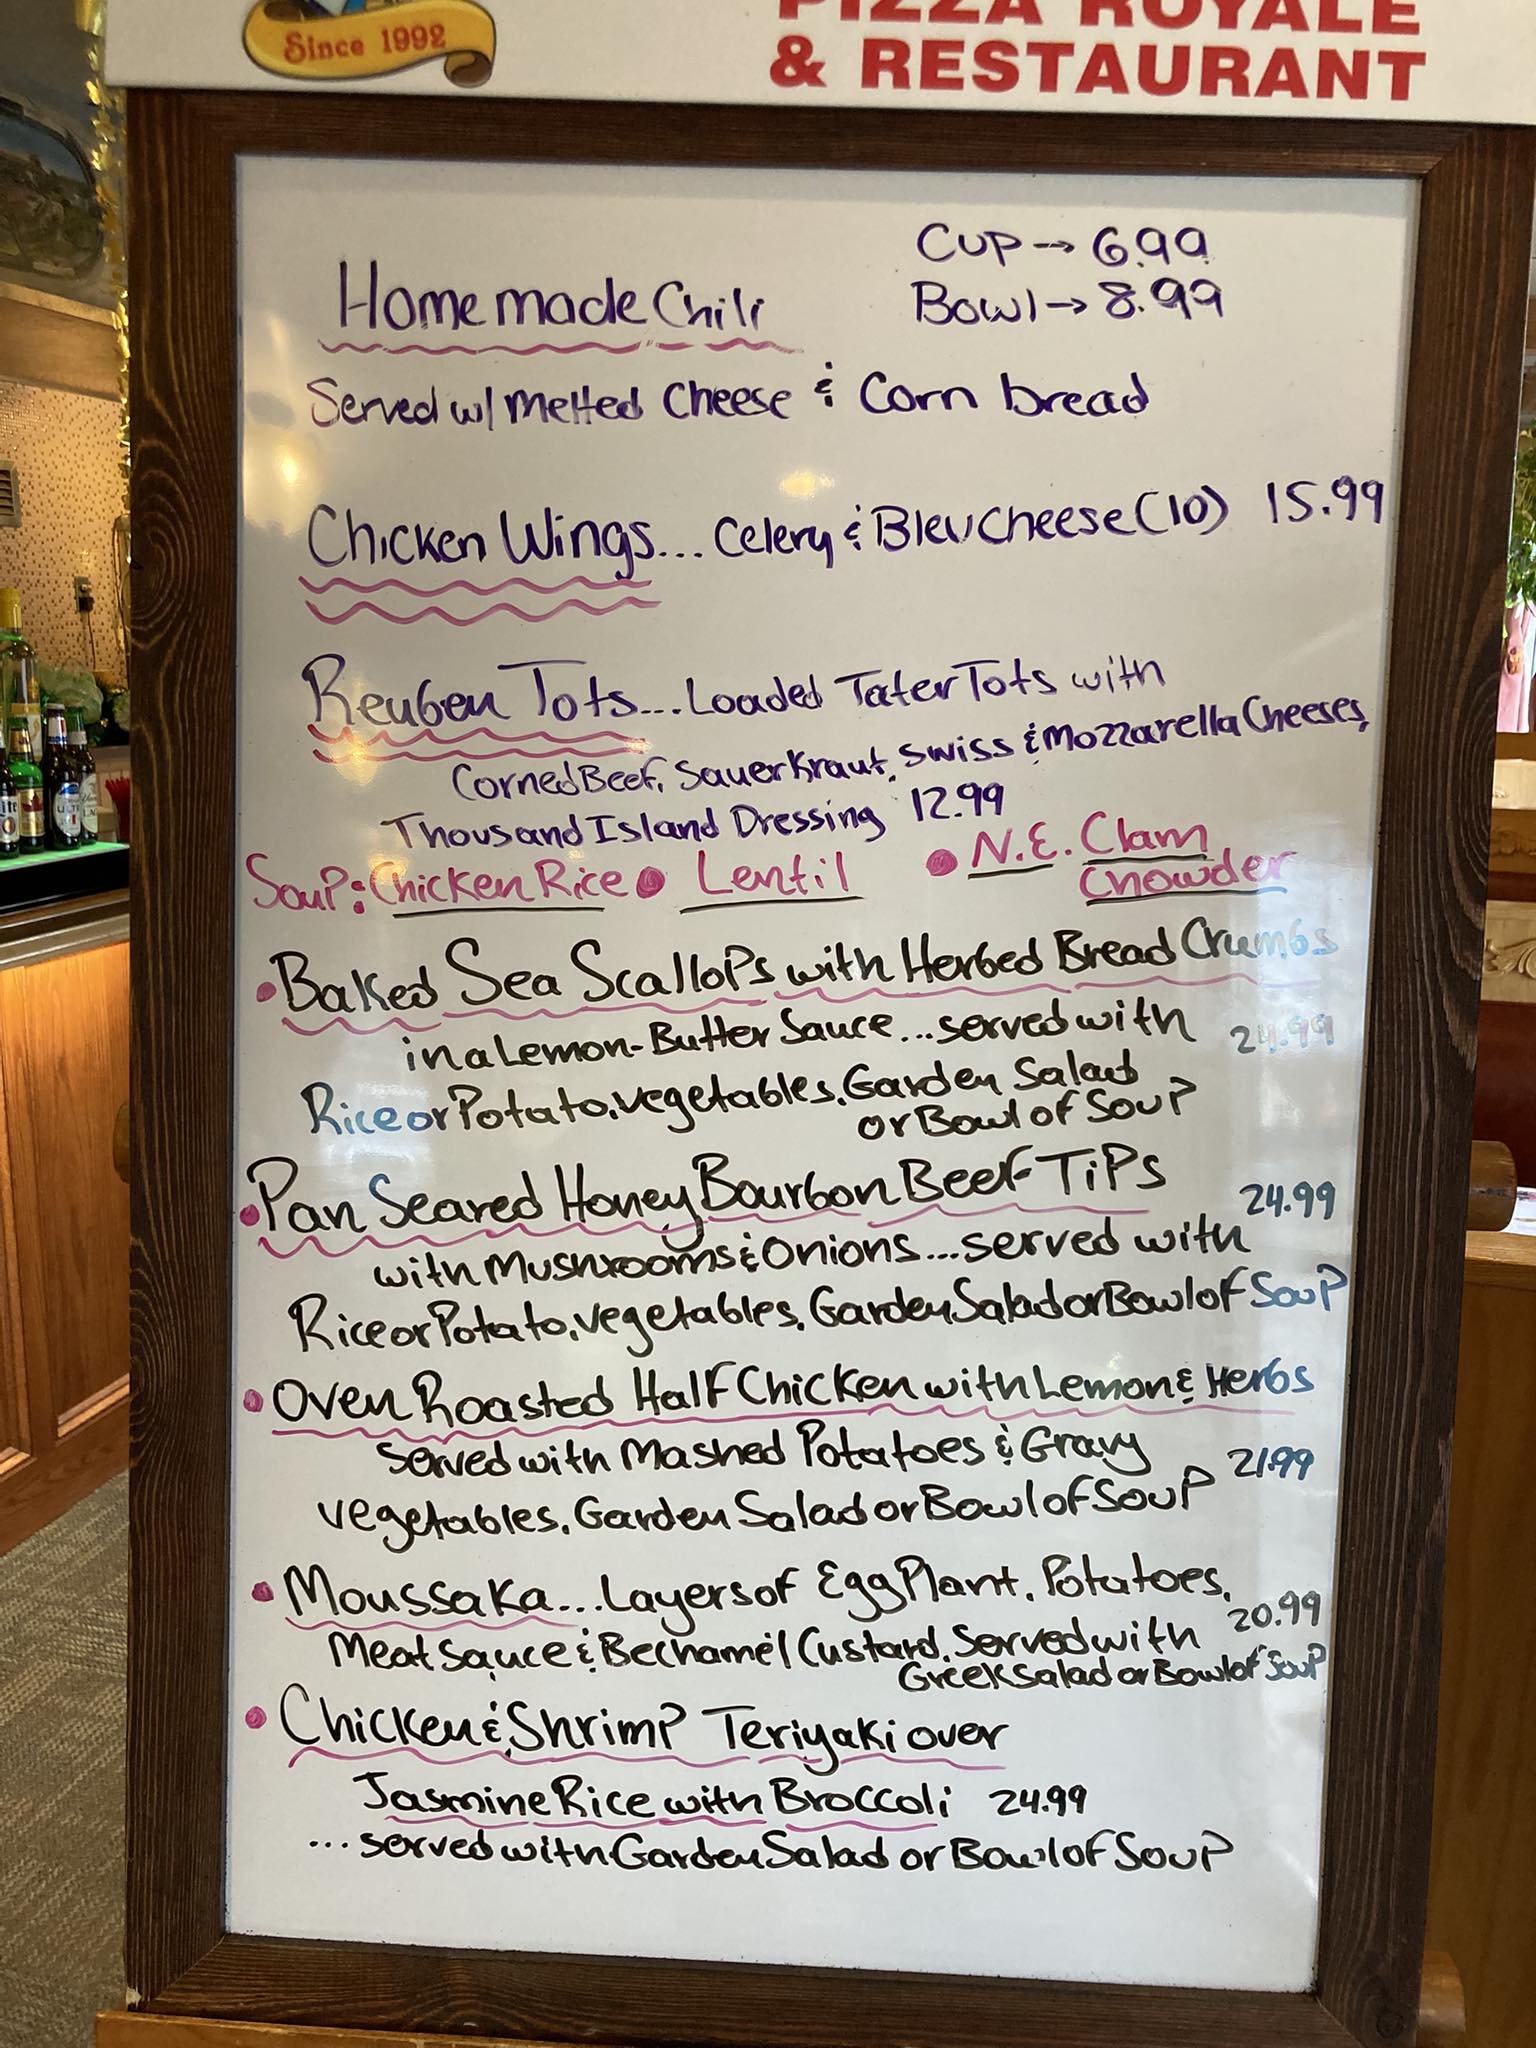 Since 1992
PIZZA ROYALE
& RESTAURANT
Cup → 6.99
Homemade Chili
Bowl → 8.99
Served w/ Melted Cheese & Corn bread
Chicken Wings... Celery & Bleu Cheese (10) 15.99
Reuben Tots... Loaded Tater Tots with
Corned Beef, Sauerkraut, Swiss & Mozzarella Cheeses,
Thousand Island Dressing 12.99
Soup: Chicken Rice • Lentil • N.E. Clam
Chowder
• Baked Sea Scallops with Herbed Bread Crumbs
in a Lemon-Butter Sauce... served with 24.99
Rice or Potato, vegetables, Garden Salad
or Bowl of Soup
• Pan Seared Honey Bourbon Beef Tips 24.99
with Mushrooms & Onions... served with
Rice or Potato, vegetables, Garden Salad or Bowl of Soup
• Oven Roasted Half Chicken with Lemon & Herbs
served with Mashed Potatoes & Gravy 21.99
vegetables, Garden Salad or Bowl of Soup
• Moussaka... Layers of EggPlant, Potatoes,
Meat sauce & Bechamel Custard, Served with 20.99
Greek Salad or Bowl of Soup
• Chicken & Shrimp Teriyaki over
Jasmine Rice with Broccoli 24.99
... served with Garden Salad or Bowl of Soup